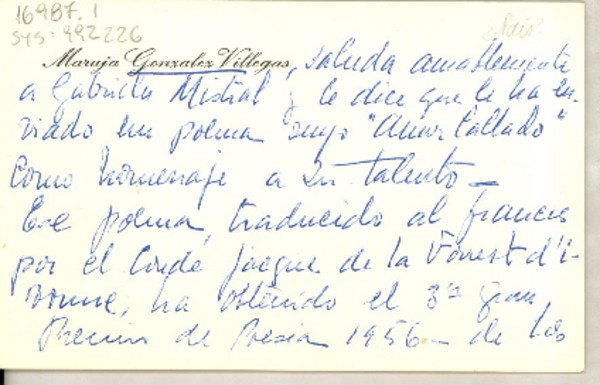 16987.1
sys: 992226
Maruja Gonzalez Villegas, saluda amablemente
a Gabriela Mistral y le dice que le ha en-
viado un poema suyo "Amor Callado"
como homenaje a su talento —
Ese poema, traducido al francés
por el Conde Jacque de la Forrest d'i-
vonne, ha obtenido el 3er gran
Premio de Poesia 1956 — de los